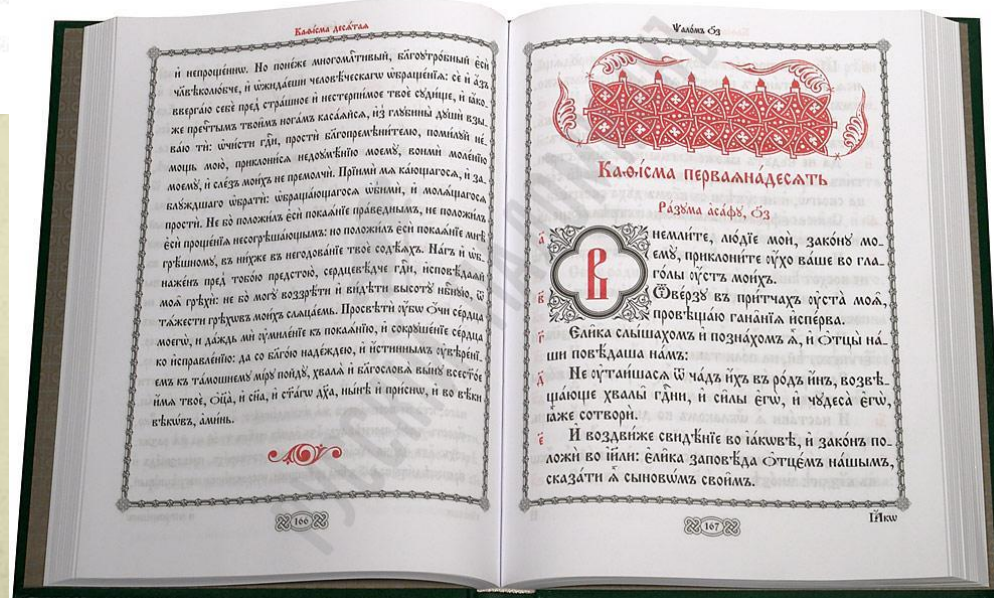 Каѳі́сма десѧ́таѧ
и҆ непроще́ннѡ. Но поне́же многомл҃тивый, бл҃гоꙋтро́бный є҆сѝ
чл҃вѣколю́бче, и҆ ѡ҆жида́еши человѣ́ческагѡ ѡ҆браще́нїѧ: сѐ и҆ а҆́зъ
вверга́ю себѐ пред̾ стра́шное и҆ нестерпи́мое твоѐ сꙋди́ще, и҆ ꙗ҆́ко-
же пречⷭ҇тымъ твои̑мъ нога́мъ каса́ѧйсѧ, и҆з̾ глꙋбины̀ дꙋшѝ взы-
ва́ю тѝ: ѡ҆чи́сти гдⷭ҇и, простѝ бл҃гопремѣни́телю, поми́лꙋй не́-
мощь мою̀, приклони́сѧ недоꙋмѣ́нїю моемꙋ̀, вонмѝ моле́нїю
моемꙋ̀, и҆ сле́зъ мои́хъ не премолчѝ. Прїимѝ мѧ ка́ющагосѧ, и҆ за-
блꙋ́ждшаго ѡ҆братѝ: ѡ҆браща́ющагосѧ ѡ҆бимѝ, и҆ молѧ́щагосѧ
простѝ. Не бо̀ положи́лъ є҆сѝ покаѧ́нїе пра́вєднымъ, не положи́лъ
є҆сѝ проще́нїѧ несогрѣша́ющымъ: но положи́лъ є҆сѝ покаѧ́нїе мнѣ̀
грѣ́шномꙋ, въ ни́хже въ негодова́нїе твоѐ содѣ́ѧхъ. На́гъ и҆ ѡ҆б-
наже́нъ пред̾ тобо́ю предстою̀, сердцевѣ́дче гдⷭ҇и, и҆сповѣ́даѧй
моѧ̑ грѣхѝ: не бо̀ могꙋ̀ воззрѣ́ти и҆ ви́дѣти высотꙋ̀ нб҃нꙋю, ѿ
тѧ́жести грѣхѡ́въ мои́хъ слѧца́емь. Просвѣтѝ ᲂу҆̀бѡ ѻ҆́чи се́рдца
моегѡ̀, и҆ да́ждь мѝ ᲂу҆миле́нїе къ покаѧ́нїю, и҆ сокрꙋше́нїе се́рдца
ко и҆справле́нїю: да со бл҃го́ю наде́ждею, и҆ и҆́стиннымъ ᲂу҆вѣре́нї-
емъ къ та́мошнемꙋ мі́рꙋ пойдꙋ̀, хвалѧ̀ и҆ бл҃гословѧ̀ вы́нꙋ всест҃о́е
и҆́мѧ твоѐ, ѻ҆ц҃а̀, и҆ сн҃а, и҆ ст҃а́гѡ дх҃а, ны́нѣ и҆ при́снѡ, и҆ во вѣ́ки
вѣкѡ́въ, а҆ми́нь.
166
Ѱало́мъ ѻ҃з
Каѳі́сма перваѧна́десѧть
Ра́зꙋма а҆са́фꙋ, ѻ҃з
а҃ Внемли́те, лю́дїе моѝ, зако́нꙋ мо-
емꙋ̀, приклони́те ᲂу҆́хо ва́ше во гла-
го́лы ᲂу҆́стъ мои́хъ.
в҃ Ѿве́рзꙋ въ при́тчахъ ᲂу҆ста̀ моѧ̑,
провѣща́ю гана̑нїѧ и҆спе́рва.
г҃ Є҆ли̑ка слы́шахомъ и҆ позна́хомъ ѧ҆̀, и҆ ѻ҆тцы̀ на́-
ши повѣ́даша на́мъ:
д҃ Не ᲂу҆таи́шасѧ ѿ ча̑дъ и҆́хъ въ ро́дъ и҆́нъ, возвѣ-
ща́юще хвалы̑ гдⷭ҇ни, и҆ си̑лы є҆гѡ̀, и҆ чꙋдеса̀ є҆гѡ̀,
ꙗ҆̀же сотворѝ.
є҃ И҆ воздви́же свидѣ́нїе во і҆а́кѡвѣ, и҆ зако́нъ по-
ложѝ во і҆и҃ли: є҆ли̑ка заповѣ́да ѻ҆тцє́мъ на́шымъ,
сказа́ти ѧ҆̀ сыновѡ́мъ свои̑мъ.
167
Ꙗ҆́кѡ